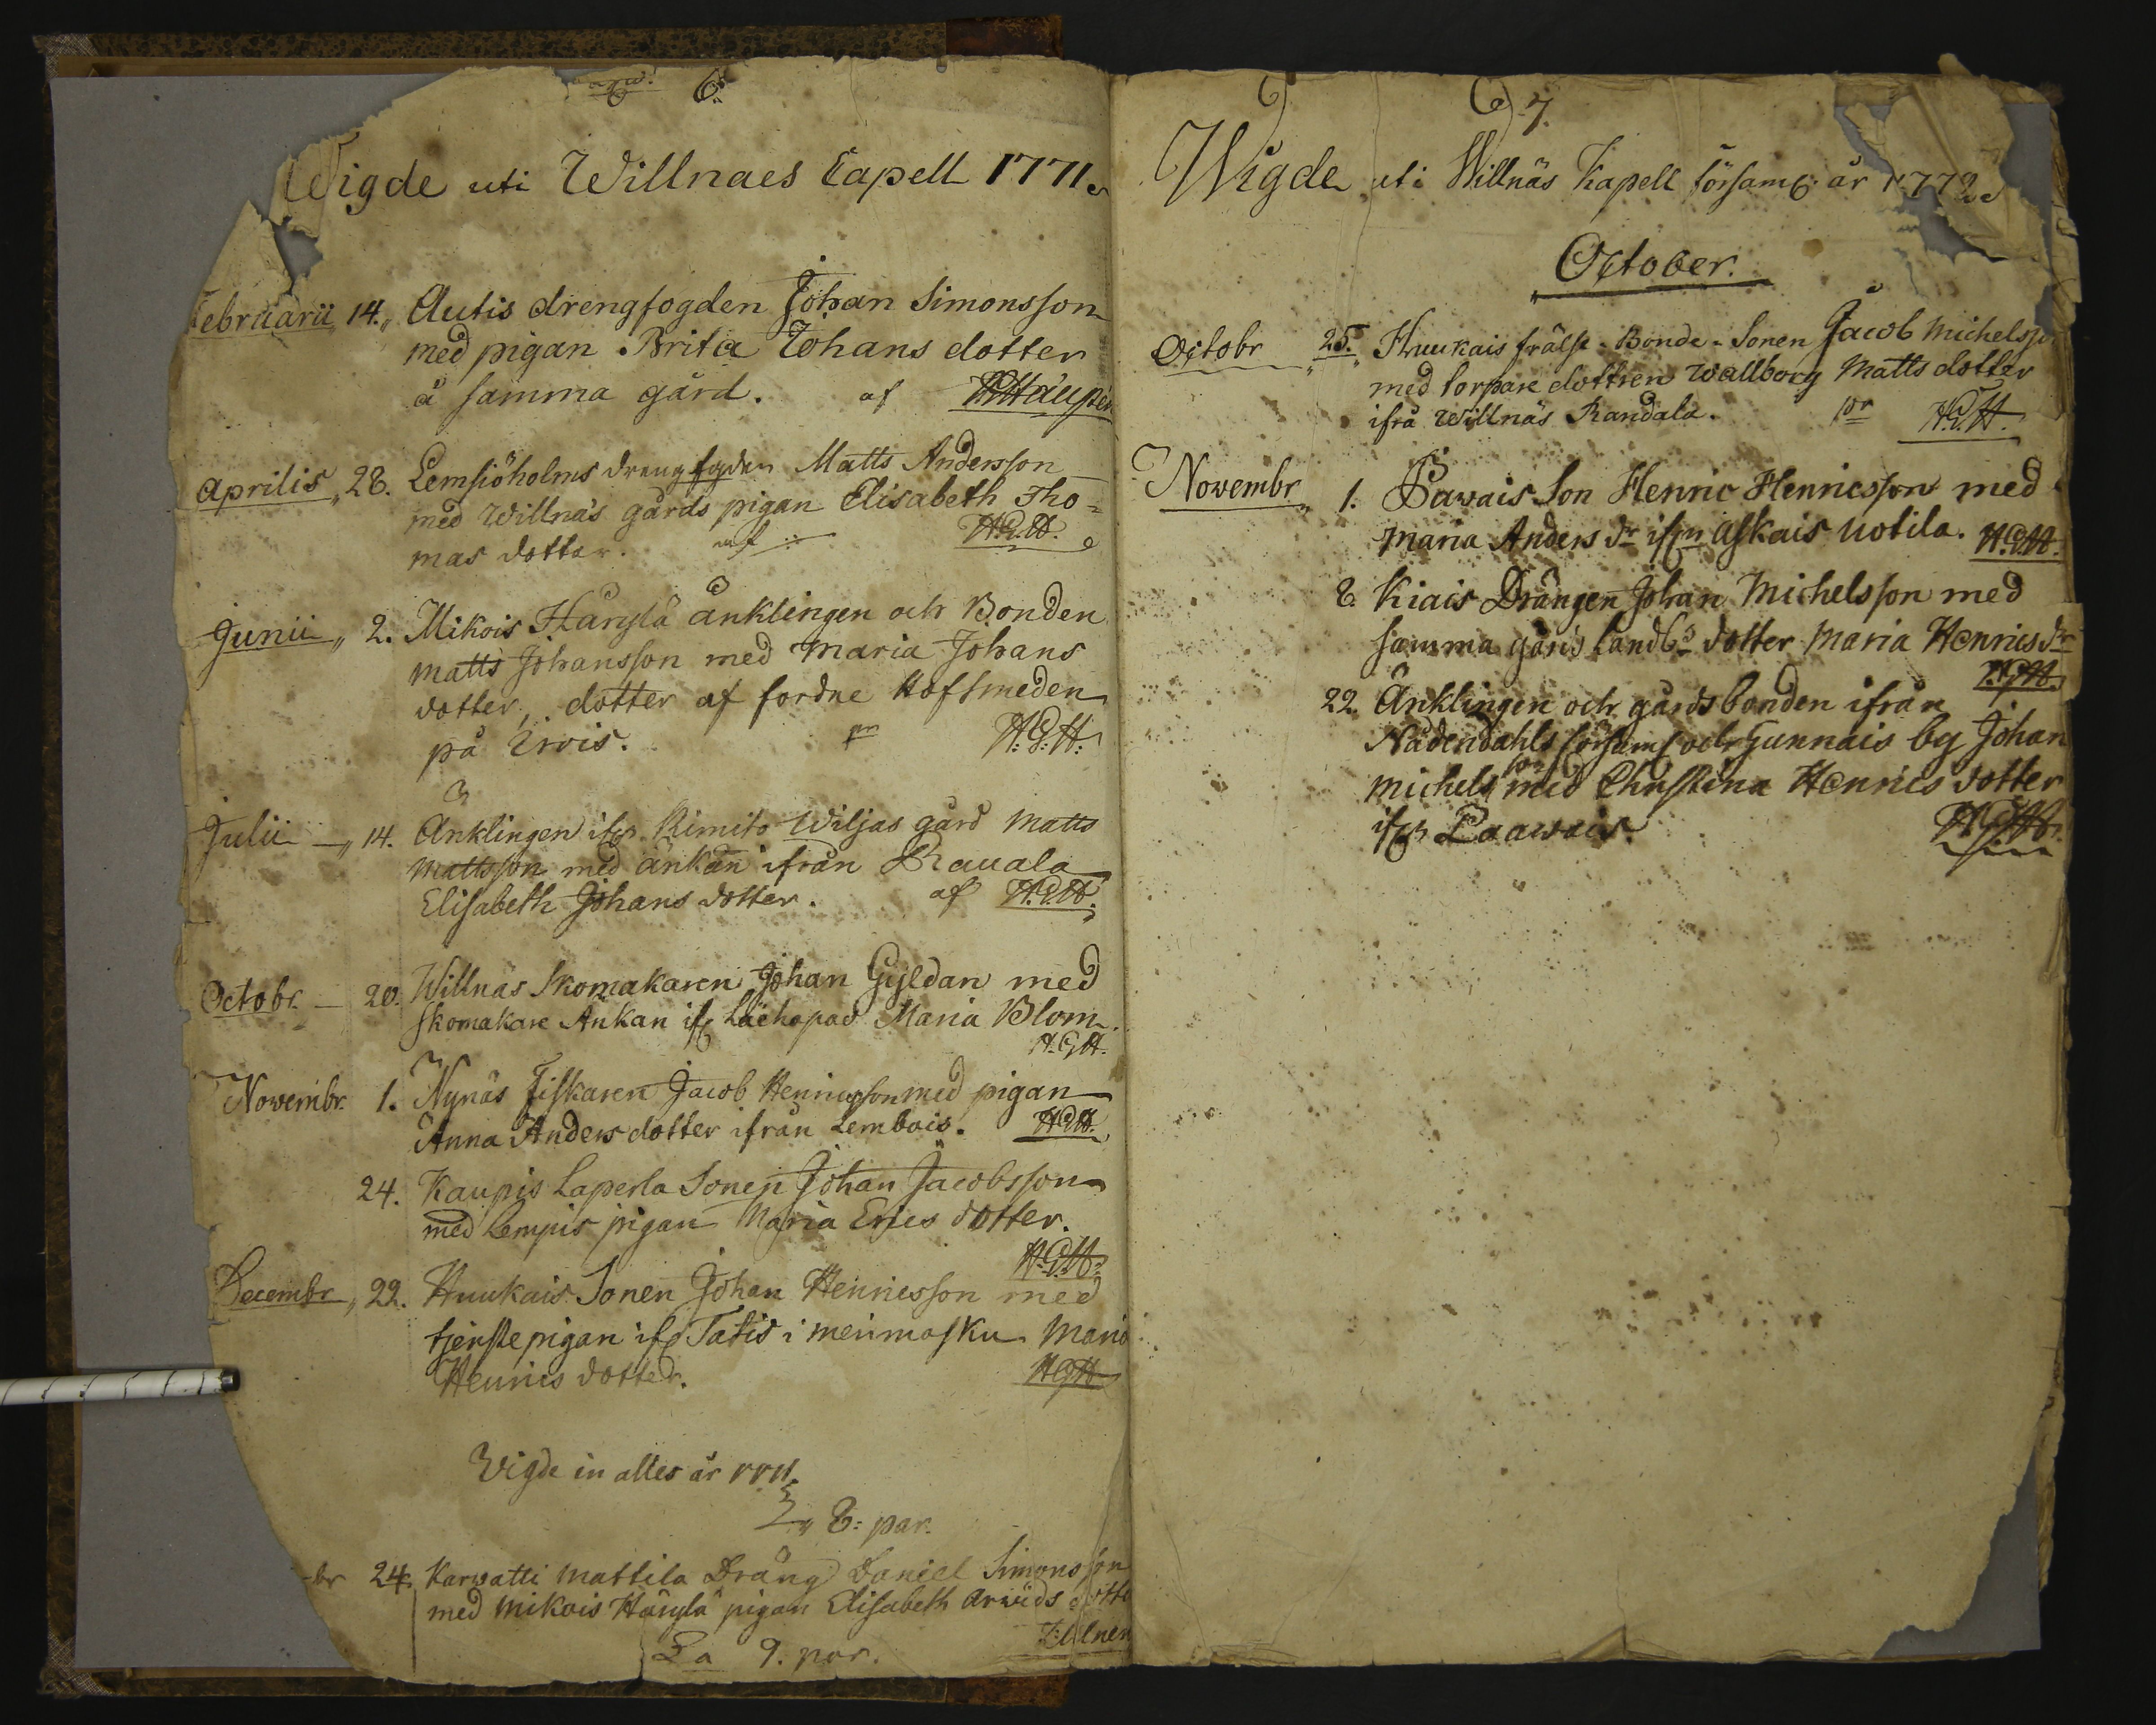 6.
Wigde uti Willnaes Capell 1771.
Februarii 14. Autis drengfogden Johan Simonsson
med pigan Brita Johans dotter
å samma gård. af
Aprilis 28. Lemsiöholms drengfgden Matts Andersson
med Willnäs gårds pigan Elisabeth Tho=
mas dotter. af H.G.H.
Junii 2. Mikois Häyylä änklingen och Bonden
Matts Johansson med Maria Johans
dotter, dotter af fordne Hofsmeden
på Ervis. pr H.G.H.
Julii 14. Änklingen ifrn Rimito Wiljas gård Matts
Mattsson med änkan ifrån Rauala
Elisabeth Johans dotter. af H.G.H.
Octobr. 20. Willnäs Skomakaren Johan Gyldan med
skomakare Ankan ifr Maria Blom.
H.G.H.
Novembr. 1. Nynäs Fiskaren Jacob Henricsson med pigan
Anna Anders dotter ifrån Lembois. HGH.
24. Kaupis Laperla Sonen Johan Jacobsson
med Lempis pigan Maria Erics dotter.
H.G.H.
Decembr 22. Huukais Sonen Johan Henricsson med
tjenste pigan ifr Tatis i merimasku Maria
Henrics dotter. HGH
Wigde in alles år 1771.
8: par.
br 24. Karvatti Mattila Dräng Daniel Simonsson
med Mikois Häyylä pigan Elisabeth Arvids dotte
La 9. par.
7.
Wigde uti Willnäs Kapell församl: år 1772.
October.
Octobr 25. Huukais frälse-Bonde-Sonen Jacob Michelsso
med torpare dottren Wallborg Matts dotter
ifrå Willnäs Randala. pr H.G.H.
Novembr 1. Pawais Son Henric Henricsson med
Maria Anders dr ifrn Askais Uotila. H.G.H.
8. Kiais Drängen Johan Michelsson med
samma gårds landbs dotter Maria Henrics dr
H.G.H.
22. Änklingen och gårdsbonden ifrån
Nådendahls församl och Gunnais by Johan
Michelsson med Christina Henrics dotter
ifrn Paawais. H.G.H.